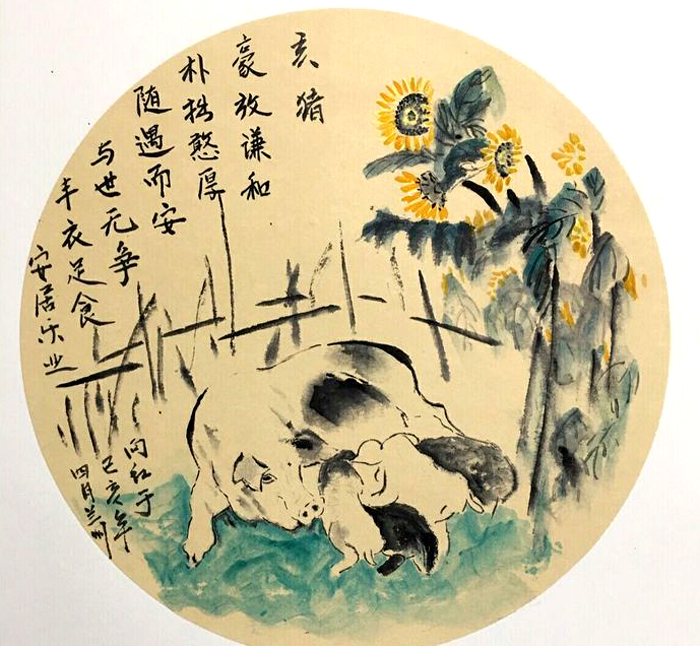 亥猪
豪放谦和
朴拙憨厚
随遇而安
与世无争
丰衣足食
安居乐业
向红于
己亥年
四月兰州